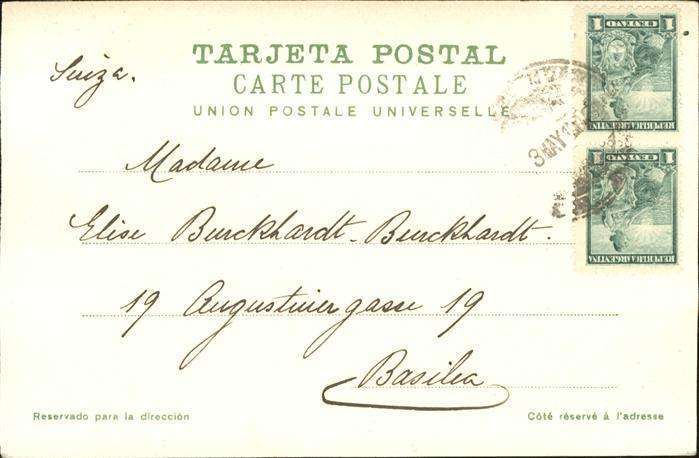 TARJETA POSTAL
CARTE POSTALE
UNION POSTALE UNIVERSELLE
Suiza.
Madame
Elise Burckhardt-Burckhardt.
19 Augustinergasse 19
Basilea
Reservado para la dirección
Côté réservé à l'adresse
1 CENTAVO 1
REPUBLICA ARGENTINA
1 CENTAVO 1
REPUBLICA ARGENTINA
3 MAY